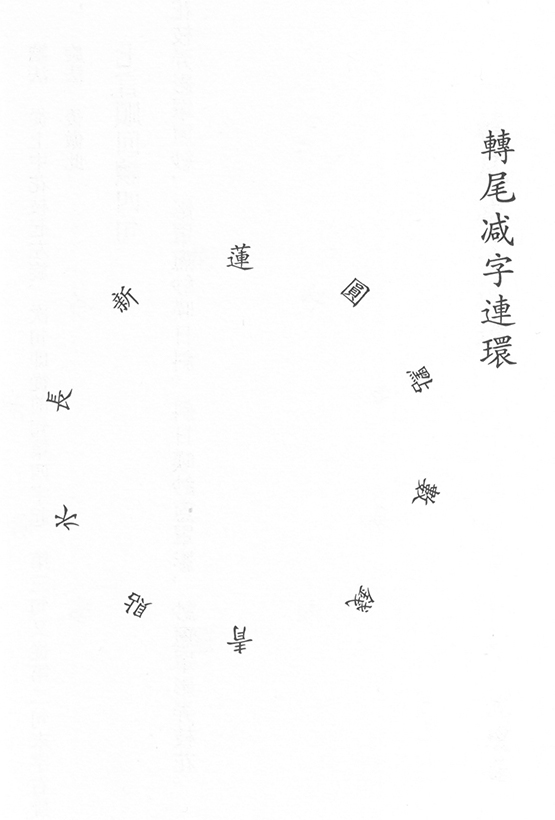 轉尾减字連環
蓮新長水貼青錢數點圓